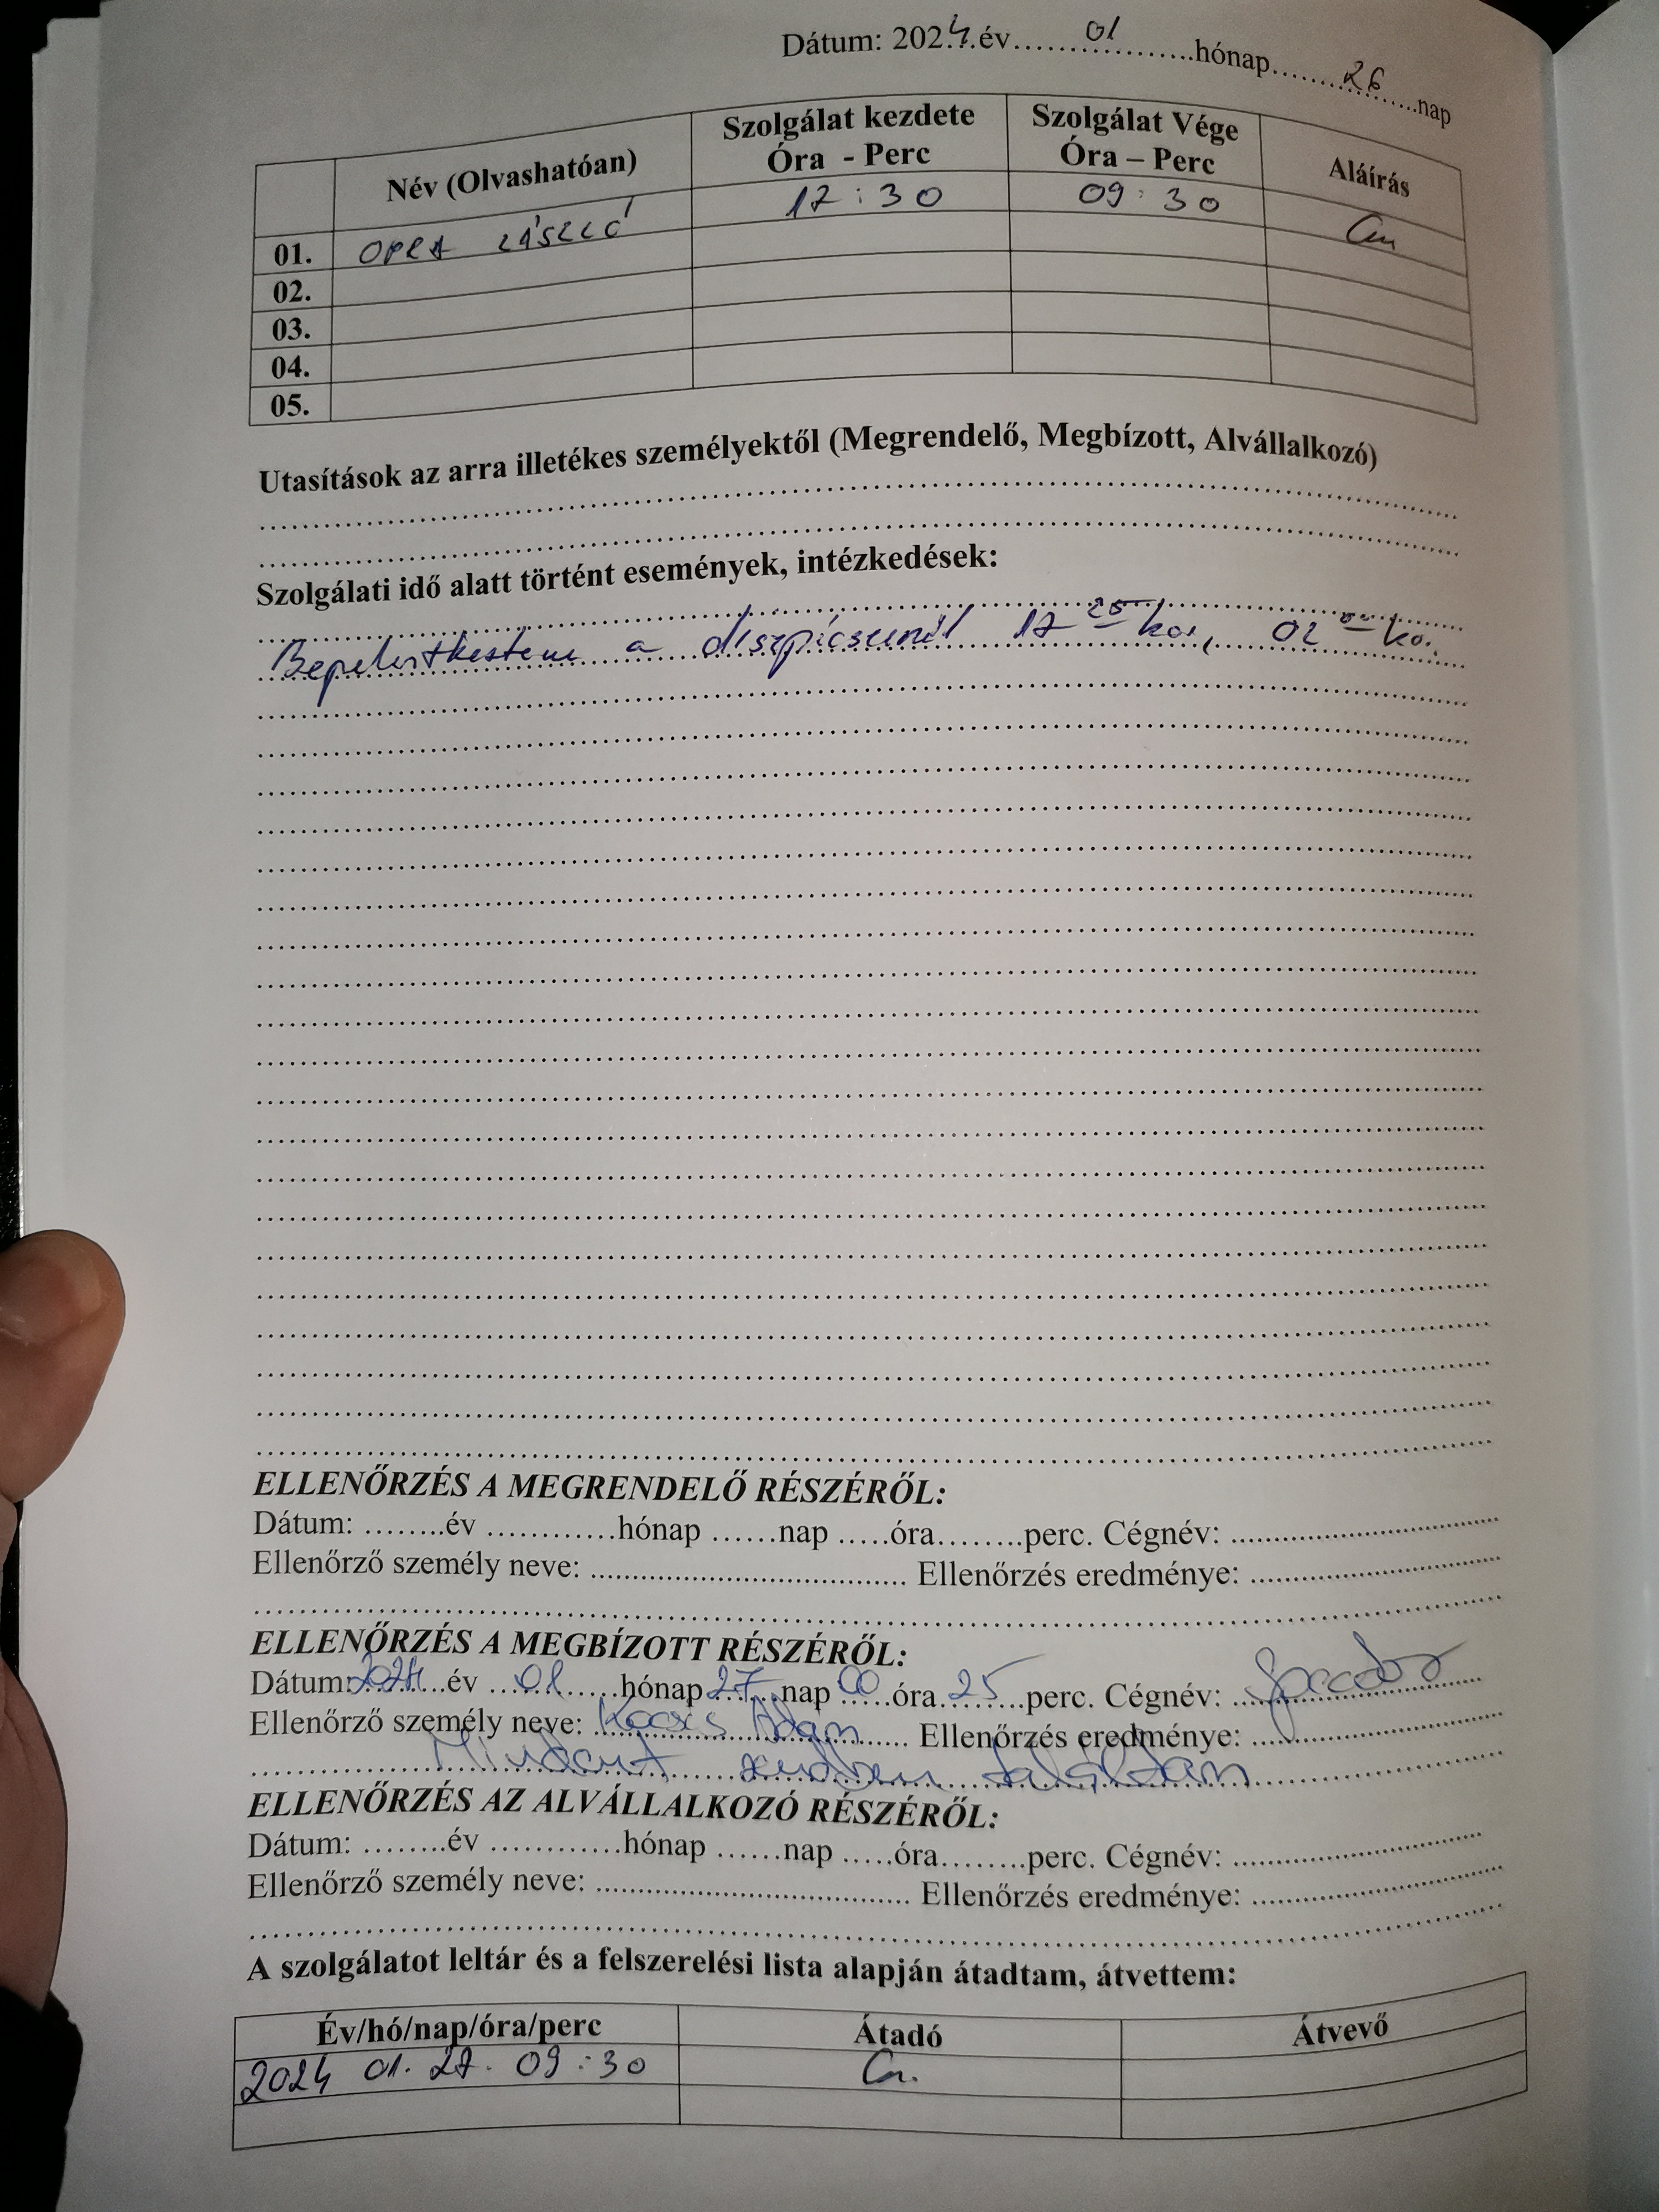 Dátum: 2024.év 01 hónap 26 nap
Név (Olvashatóan) Szolgálat kezdete Óra - Perc Szolgálat Vége Óra – Perc Aláírás
01. OPRA LÁSZLÓ 17:30 09:30
02.
03.
04.
05.
Utasítások az arra illetékes személyektől (Megrendelő, Megbízott, Alvállalkozó)
Szolgálati idő alatt történt események, intézkedések:
a 17 25 kor, 02
ELLENŐRZÉS A MEGRENDELŐ RÉSZÉRŐL:
Dátum: ........év ............hónap ......nap .....óra........perc. Cégnév: ..............................
Ellenőrző személy neve: ...................................... Ellenőrzés eredménye: ..............................
ELLENŐRZÉS A MEGBÍZOTT RÉSZÉRŐL:
Dátum: 2024 év 01 hónap 27 nap 00 óra 25 perc. Cégnév:
Ellenőrző személy neve: Kocsis Ádám Ellenőrzés eredménye:
Mindent rendben találtam
ELLENŐRZÉS AZ ALVÁLLALKOZÓ RÉSZÉRŐL:
Dátum: ........év ............hónap ......nap .....óra........perc. Cégnév: ..............................
Ellenőrző személy neve: ...................................... Ellenőrzés eredménye: ..............................
A szolgálatot leltár és a felszerelési lista alapján átadtam, átvettem:
Év/hó/nap/óra/perc Átadó Átvevő
2024 01. 27. 09:30